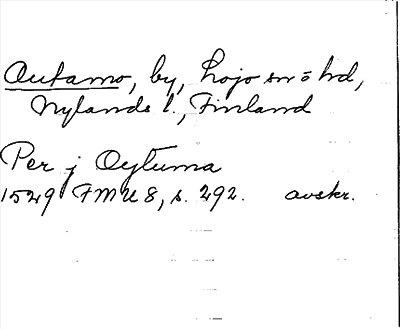 Outamo, by, Lojo sn o hd,
Nylands l., Finland
Per j Oytuma
1529 FMU 8, s. 292. avskr.